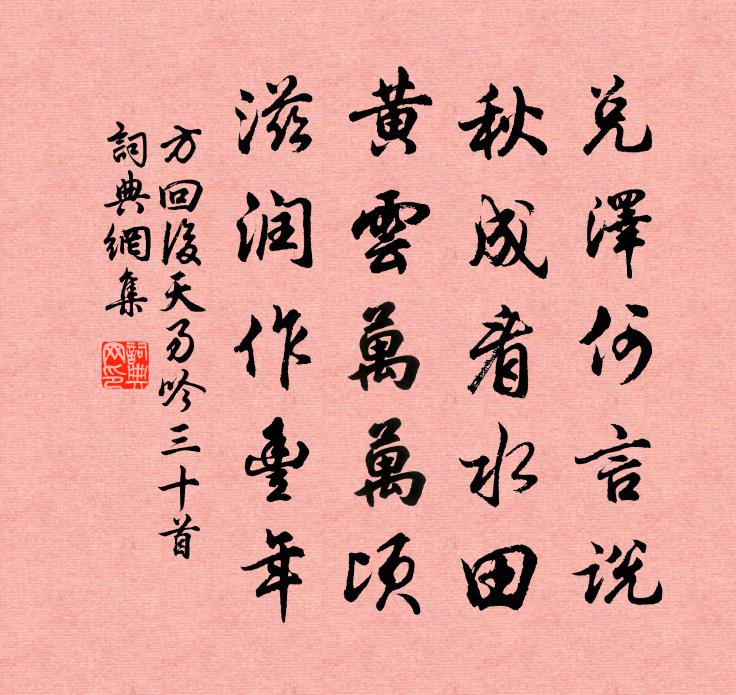 兑澤何言説
秋成看水田
黄雲萬萬頃
滋润作豐年
方回後天易吟三十首
詞典網集
詞典網印